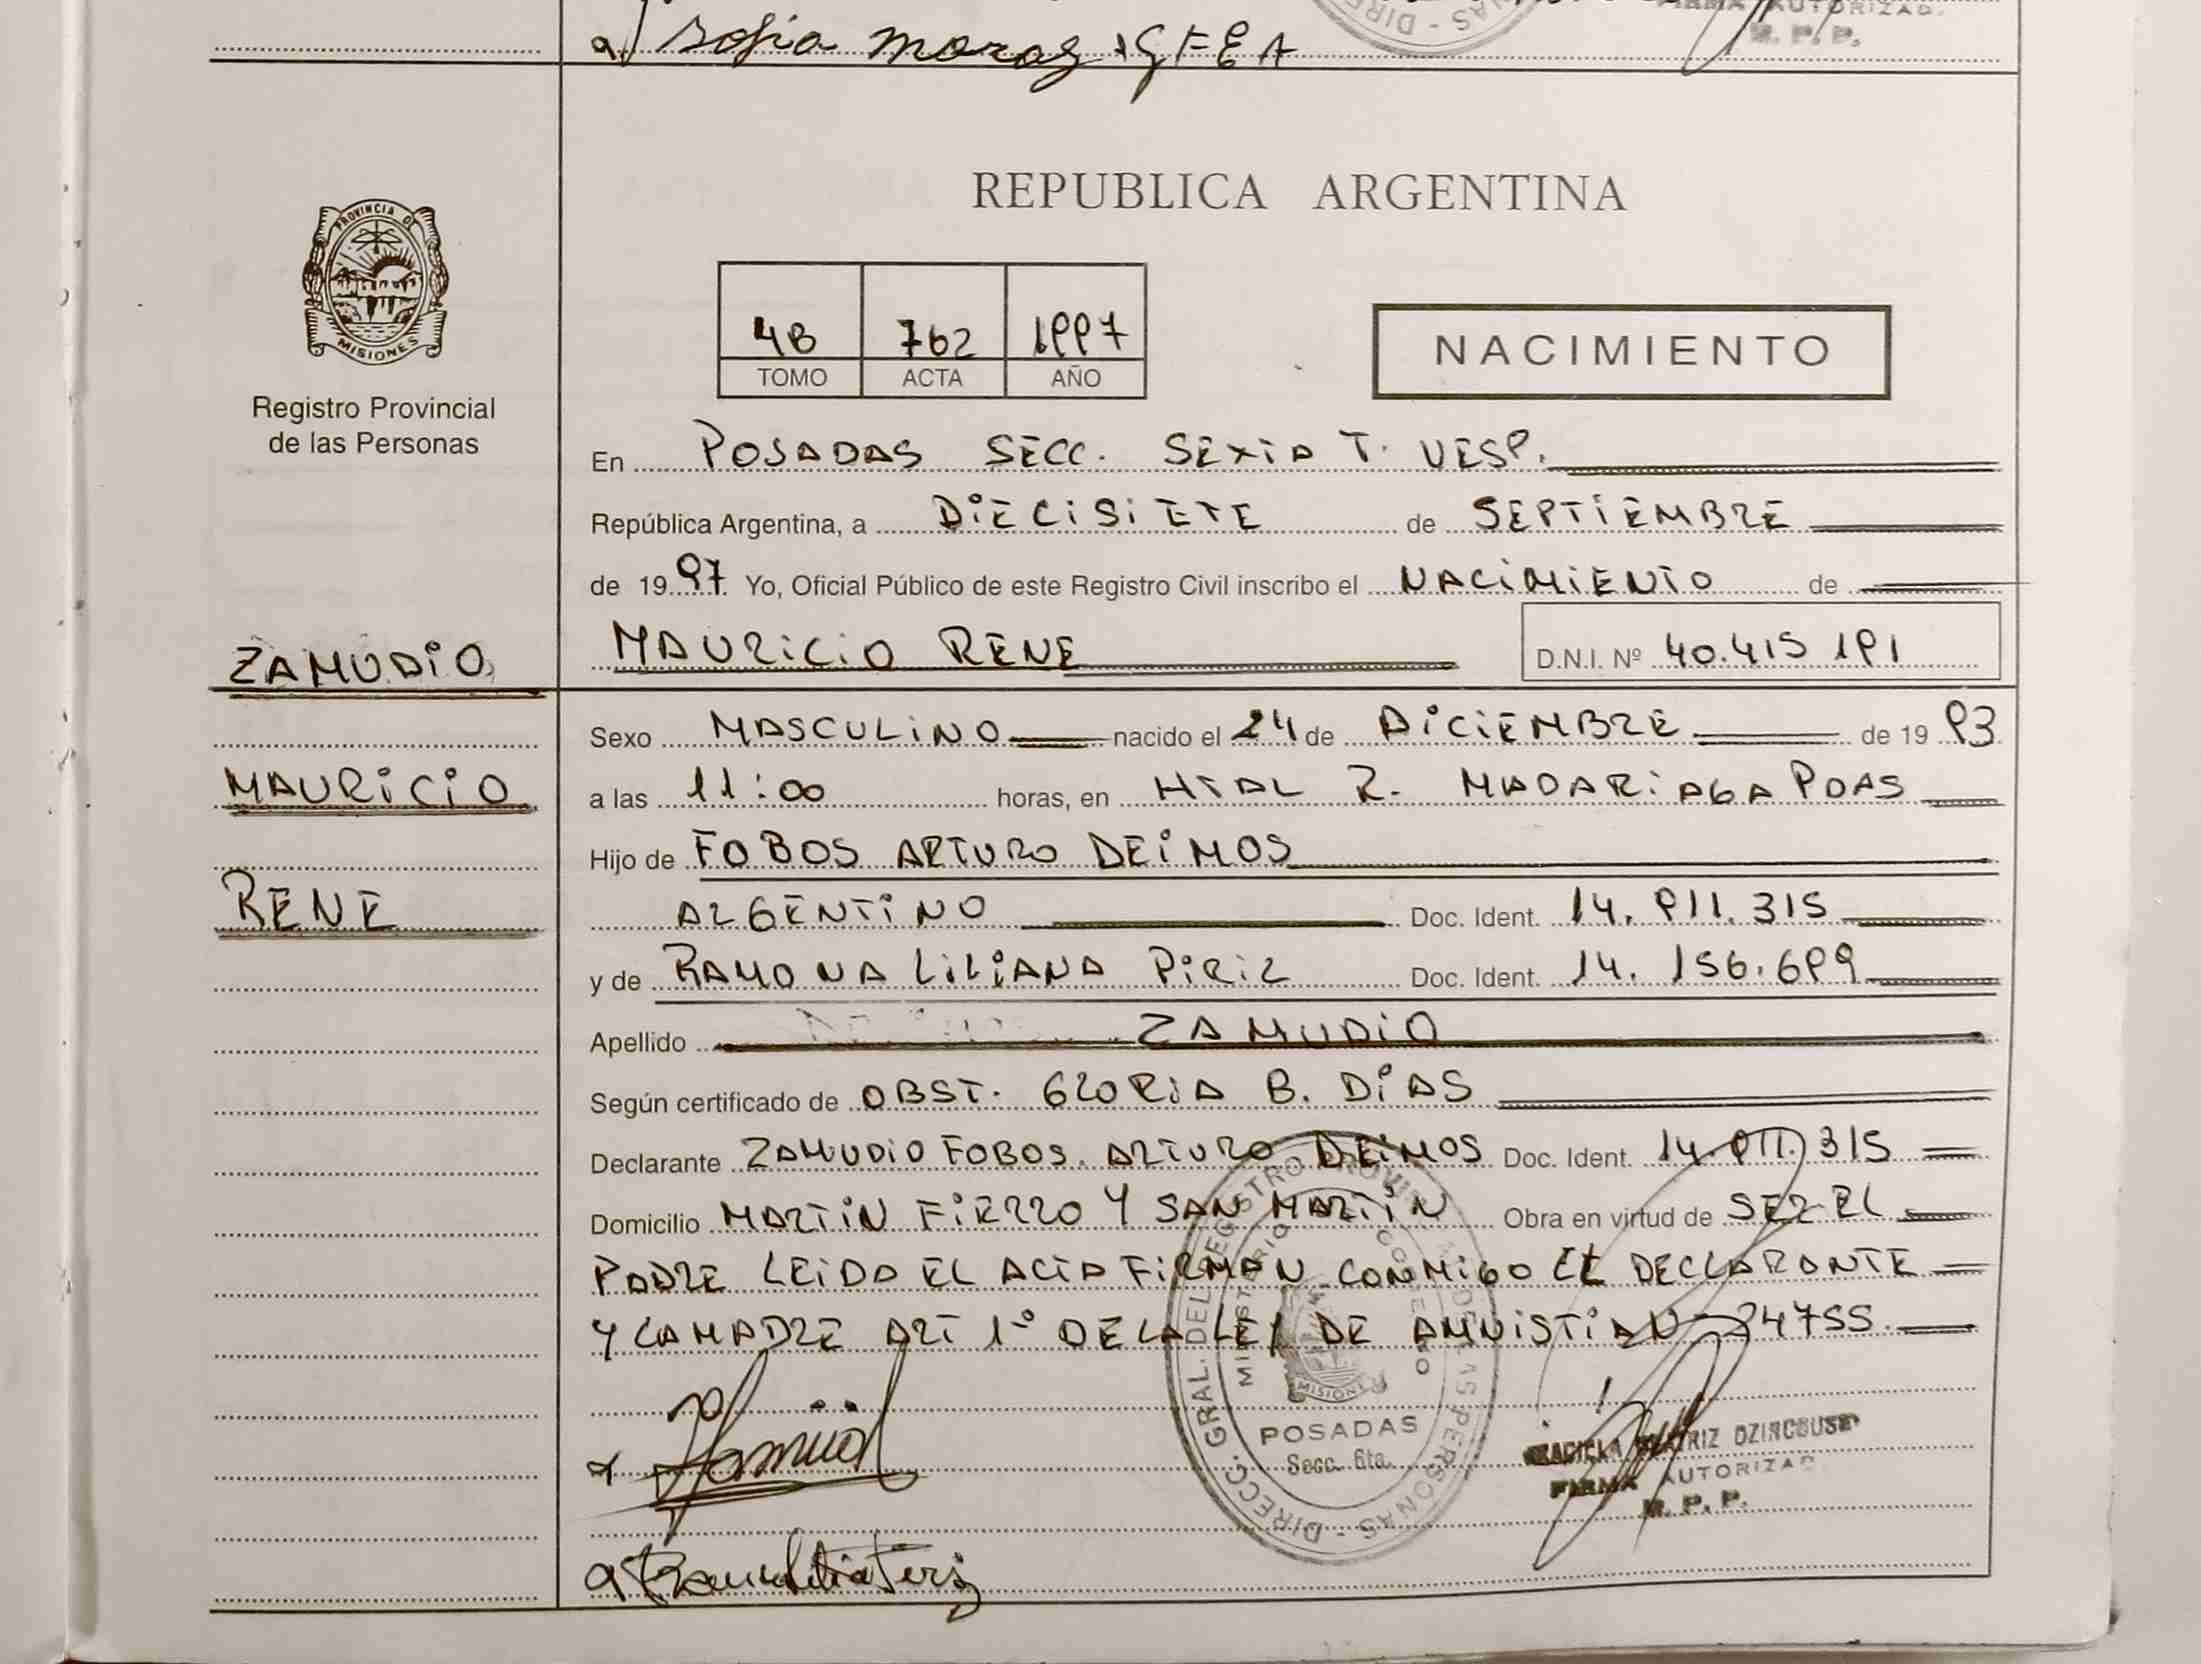 a Sofia moraz
FIRMA AUTORIZAD.
R. P. P.
REPUBLICA ARGENTINA
PROVINCIA DE
MISIONES
Registro Provincial
de las Personas
4B 762 1997
TOMO ACTA AÑO
NACIMIENTO
En POSADAS SECC. SEXTA T. VESP.
República Argentina, a DIECISIETE de SEPTIEMBRE
de 1997 Yo, Oficial Público de este Registro Civil inscribo el NACIMIENTO de
ZAMUDIO
MAURICIO RENE
D.N.I. Nº 40.415 191
Sexo MASCULINO nacido el 24 de DICIEMBRE de 1993
MAURICIO
a las 11:00 horas, en HTAL R. MADARIAGA PDAS
Hijo de FOBOS ARTURO DEIMOS
RENE
ARGENTINO Doc. Ident. 14.911.315
y de RAMONA LILIANA PIRIZ Doc. Ident. 14.156.699
Apellido ZAMUDIO
Según certificado de OBST. GLORIA B. DIAS
Declarante ZAMUDIO FOBOS ARTURO DEIMOS Doc. Ident. 14.911.315
Domicilio MARTIN FIERRO Y SAN MARTIN Obra en virtud de SER EL
PADRE LEIDO EL ACTA FIRMAN CONMIGO EL DECLARANTE
Y LA MADRE ART 1º DE LA LEY DE AMNISTIA Nº 24755
DIRECC. GRAL. DEL REGISTRO PROVINCIAL DE LAS PERSONAS
MISIONES
POSADAS
Secc. 6ta.
BEATRIZ
FIRMA AUTORIZAD
R. P. P.